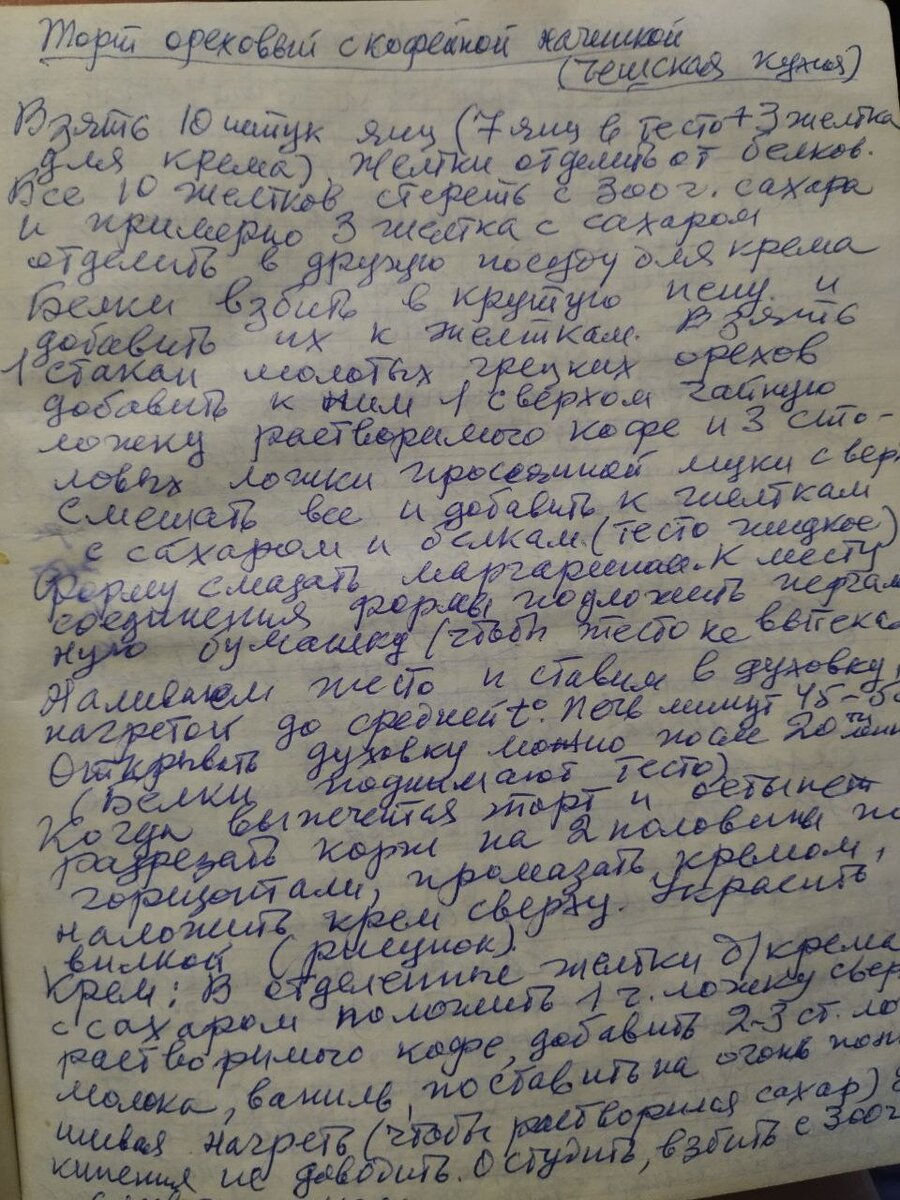 Торт ореховый с кофейной начинкой
(чешская кухня)
Взять 10 штук яиц (7 яиц в тесто + 3 желтка
для крема). Желтки отделить от белков.
Все 10 желтков стереть с 300 г. сахара
и примерно 3 желтка с сахаром
отделить в другую посуду для крема
Белки взбить в крутую пену и
добавить их к желткам. Взять
1 стакан молотых грецких орехов
добавить к ним 1 с верхом чайную
ложку растворимого кофе и 3 сто-
ловых ложки просеянной муки с верх
Смешать все и добавить к желткам
с сахаром и белкам. (тесто жидкое)
Форму смазать маргарином. К месту
соединения формы подложить пергам
ную бумажку (чтобы тесто не вытека
Наливаем тесто и ставим в духовку,
нагретой до средней t°. Печь минут 45-5
Открывать духовку можно после 20ти мин
(Белки поднимают тесто)
Когда выпечется торт и остынет
разрезать корж на 2 половины по
горизонтали, промазать кремом,
наложить крем сверху. Украсить
вилкой (рисунок).
Крем: В отделенные желтки д/крема
с сахаром положить 1 ч. ложку свер
растворимого кофе, добавить 2-3 ст. ло
молока, ваниль, поставить на огонь
шивая нагреть (чтобы растворился сахар)
кипения не доводить. Остудить, взбить с 300г